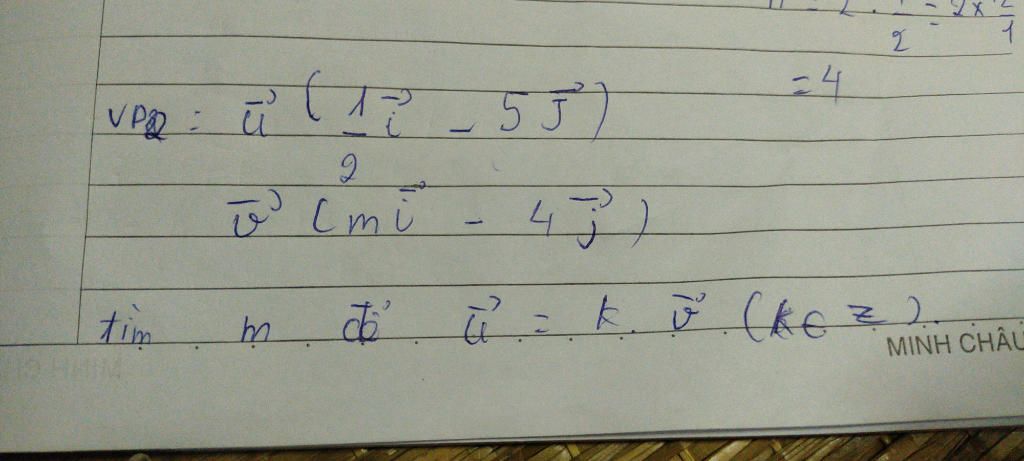 = 2 × 2/1
= 4
VD2 : u⃗ ( 1/2 i⃗ - 5 j⃗ )
v⃗ ( m i⃗ - 4 j⃗ )
tìm m để u⃗ = k. v⃗ (k ∈ z).
MINH CHÂU